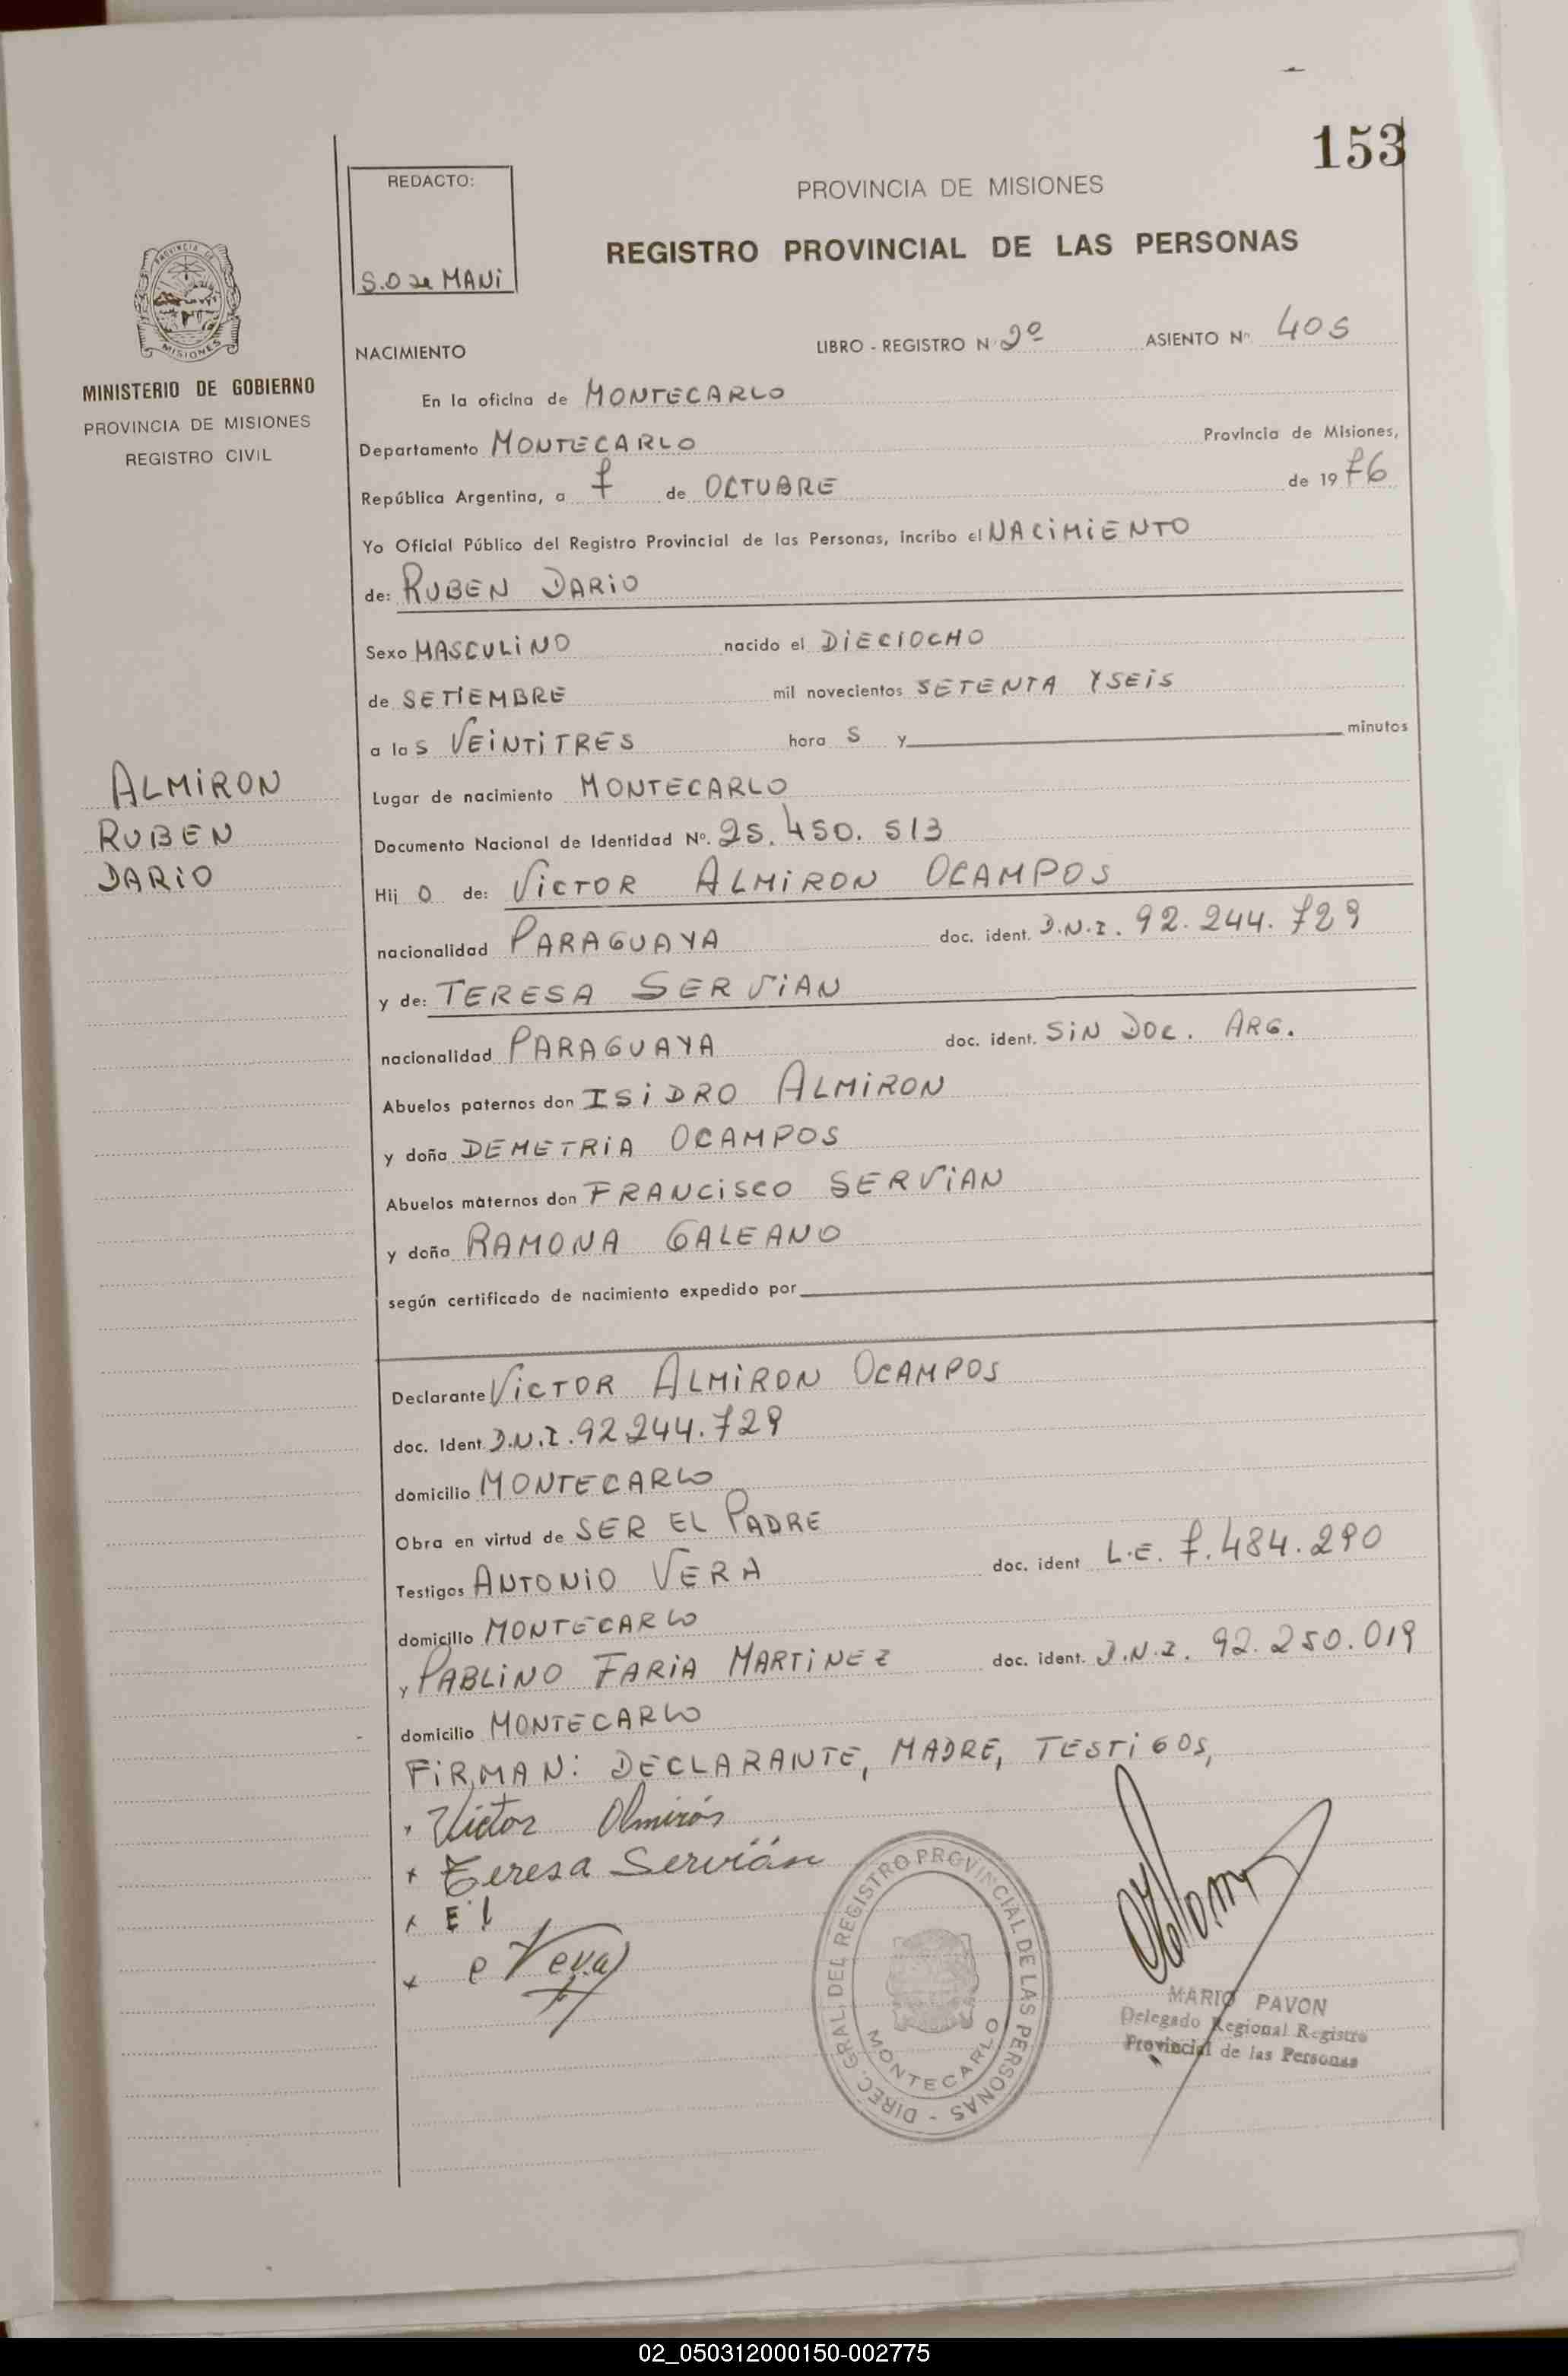 153
REDACTO:
S.O de MANI
PROVINCIA DE MISIONES
REGISTRO PROVINCIAL DE LAS PERSONAS
PROVINCIA DE
MISIONES
MINISTERIO DE GOBIERNO
PROVINCIA DE MISIONES
REGISTRO CIVIL
NACIMIENTO LIBRO - REGISTRO N 2º ASIENTO Nº 405
En la oficina de MONTECARLO
Departamento MONTECARLO Provincia de Misiones,
República Argentina, a 7 de OCTUBRE de 1976
Yo Oficial Público del Registro Provincial de las Personas, incribo el NACIMIENTO
de: RUBEN DARIO
Sexo MASCULINO nacido el DIECIOCHO
de SETIEMBRE mil novecientos SETENTA Y SEIS
a las VEINTITRES horas y minutos
ALMIRON
RUBEN
DARIO
Lugar de nacimiento MONTECARLO
Documento Nacional de Identidad Nº. 25.450.513
Hijo de: VICTOR ALMIRON OCAMPOS
nacionalidad PARAGUAYA doc. ident. D.N.I. 92.244.729
y de: TERESA SERVIAN
nacionalidad PARAGUAYA doc. ident. SIN DOC. ARG.
Abuelos paternos don ISIDRO ALMIRON
y doña DEMETRIA OCAMPOS
Abuelos maternos don FRANCISCO SERVIAN
y doña RAMONA GALEANO
según certificado de nacimiento expedido por
Declarante VICTOR ALMIRON OCAMPOS
doc. Ident. D.N.I. 92.244.729
domicilio MONTECARLO
Obra en virtud de SER EL PADRE
Testigos ANTONIO VERA doc. ident L.E. 7.484.290
domicilio MONTECARLO
y PABLINO FARIA MARTINEZ doc. ident. D.N.I. 92.250.019
domicilio MONTECARLO
FIRMAN: DECLARANTE, MADRE, TESTIGOS,
Victor Almirón
x Teresa Servián
x
x Vera
DIREC. GRAL. DEL REGISTRO PROVINCIAL DE LAS PERSONAS -
MONTECARLO
MARIO PAVON
Delegado Regional Registro
Provincial de las Personas
02_050312000150-002775